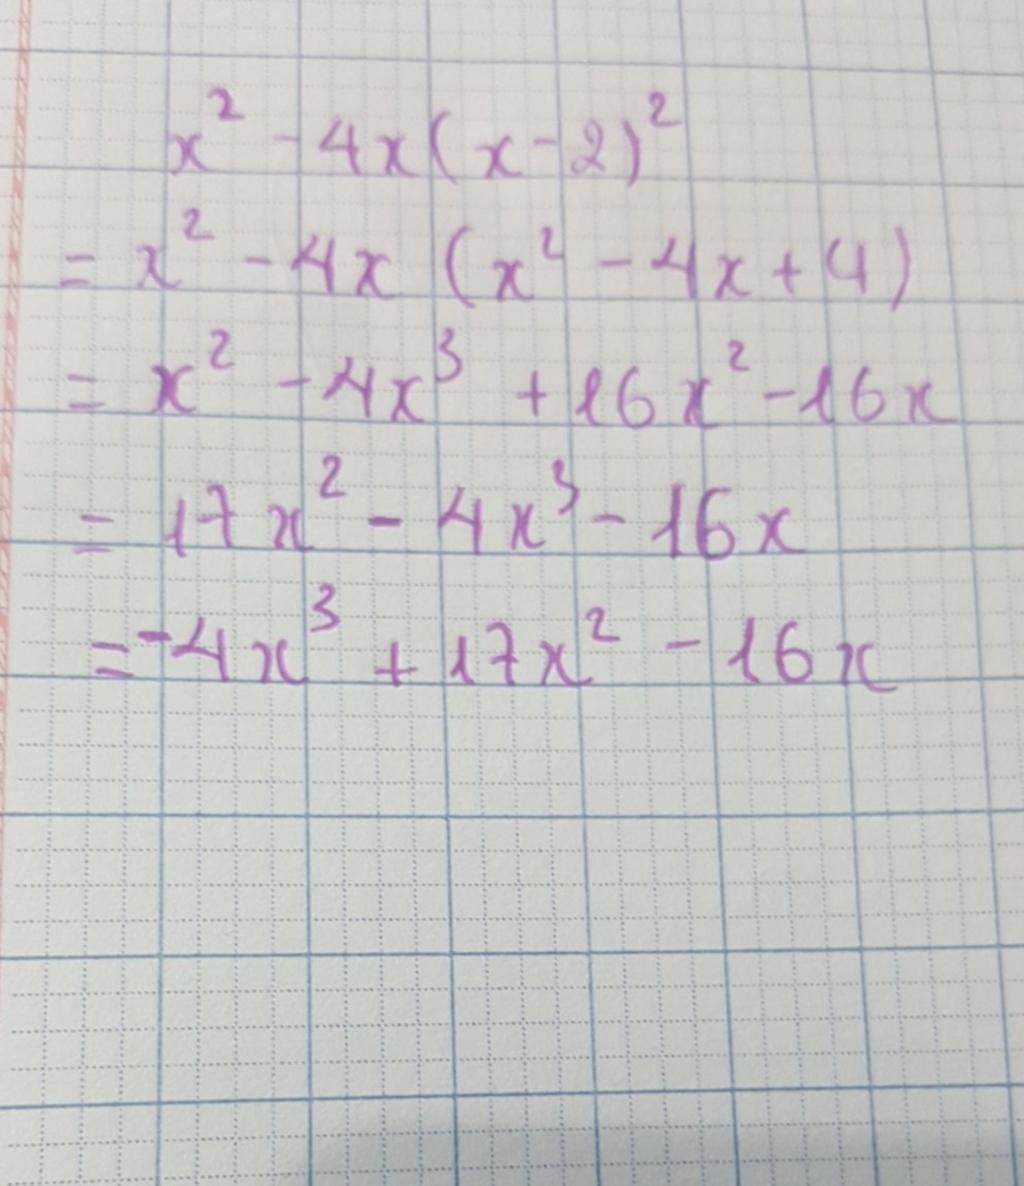 x² - 4x(x-2)²
= x² - 4x (x² - 4x + 4)
= x² - 4x³ + 16x² - 16x
= 17x² - 4x³ - 16x
= -4x³ + 17x² - 16x